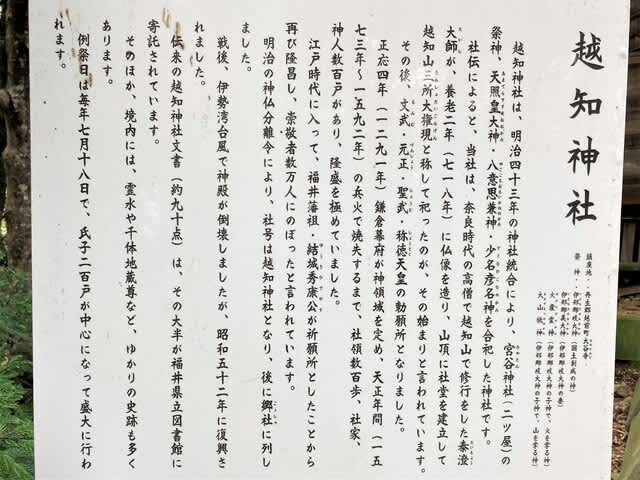 越知神社
鎮座地・・丹生郡越前町大谷寺
祭神・・伊邪那岐大神（国土創成の神）
伊邪那美大神（伊邪那岐大神の妻）
火産霊神（伊邪那岐大神の子神で、火を掌る神）
大山祇神（伊邪那岐大神の子神で、山を掌る神）
越知神社は、明治四十三年の神社統合により、宮谷神社（二ツ屋）の
祭神、天照皇大神・八意思兼神・少名彦名神を合祀した神社です。
社伝によると、当社は、奈良時代の高僧で越知山で修行をした泰澄
大師が、養老二年（七一八年）に仏像を造り、山頂に社堂を建立して
越知山三所大権現と称して祀ったのが、その始まりと言われています。
その後、文武・元正・聖武・称徳天皇の勅願所となりました。
正応四年（一二九一年）鎌倉幕府が神領域を定め、天正年間（一五
七三年～一五九二年）の兵火で焼失するまで、社領数百歩、社家、
神人数百戸があり、隆盛を極めていました。
江戸時代に入って、福井藩祖・結城秀康公が祈願所としたことから
再び隆昌し、崇敬者数万人にのぼったと言われています。
明治の神仏分離令により、社号は越知神社となり、後に郷社に列し
ました。
戦後、伊勢湾台風で神殿が倒壊しましたが　昭和五十二年に復興さ
れました。
伝来の越知神社文書（約九十点）は、その大半が福井県立図書館に
寄託されています。
そのほか、境内には、霊水や千体地蔵尊など、ゆかりの史跡も多く
あります。
例祭日は毎年七月十八日で、氏子二百戸が中心になって盛大に行わ
れます。